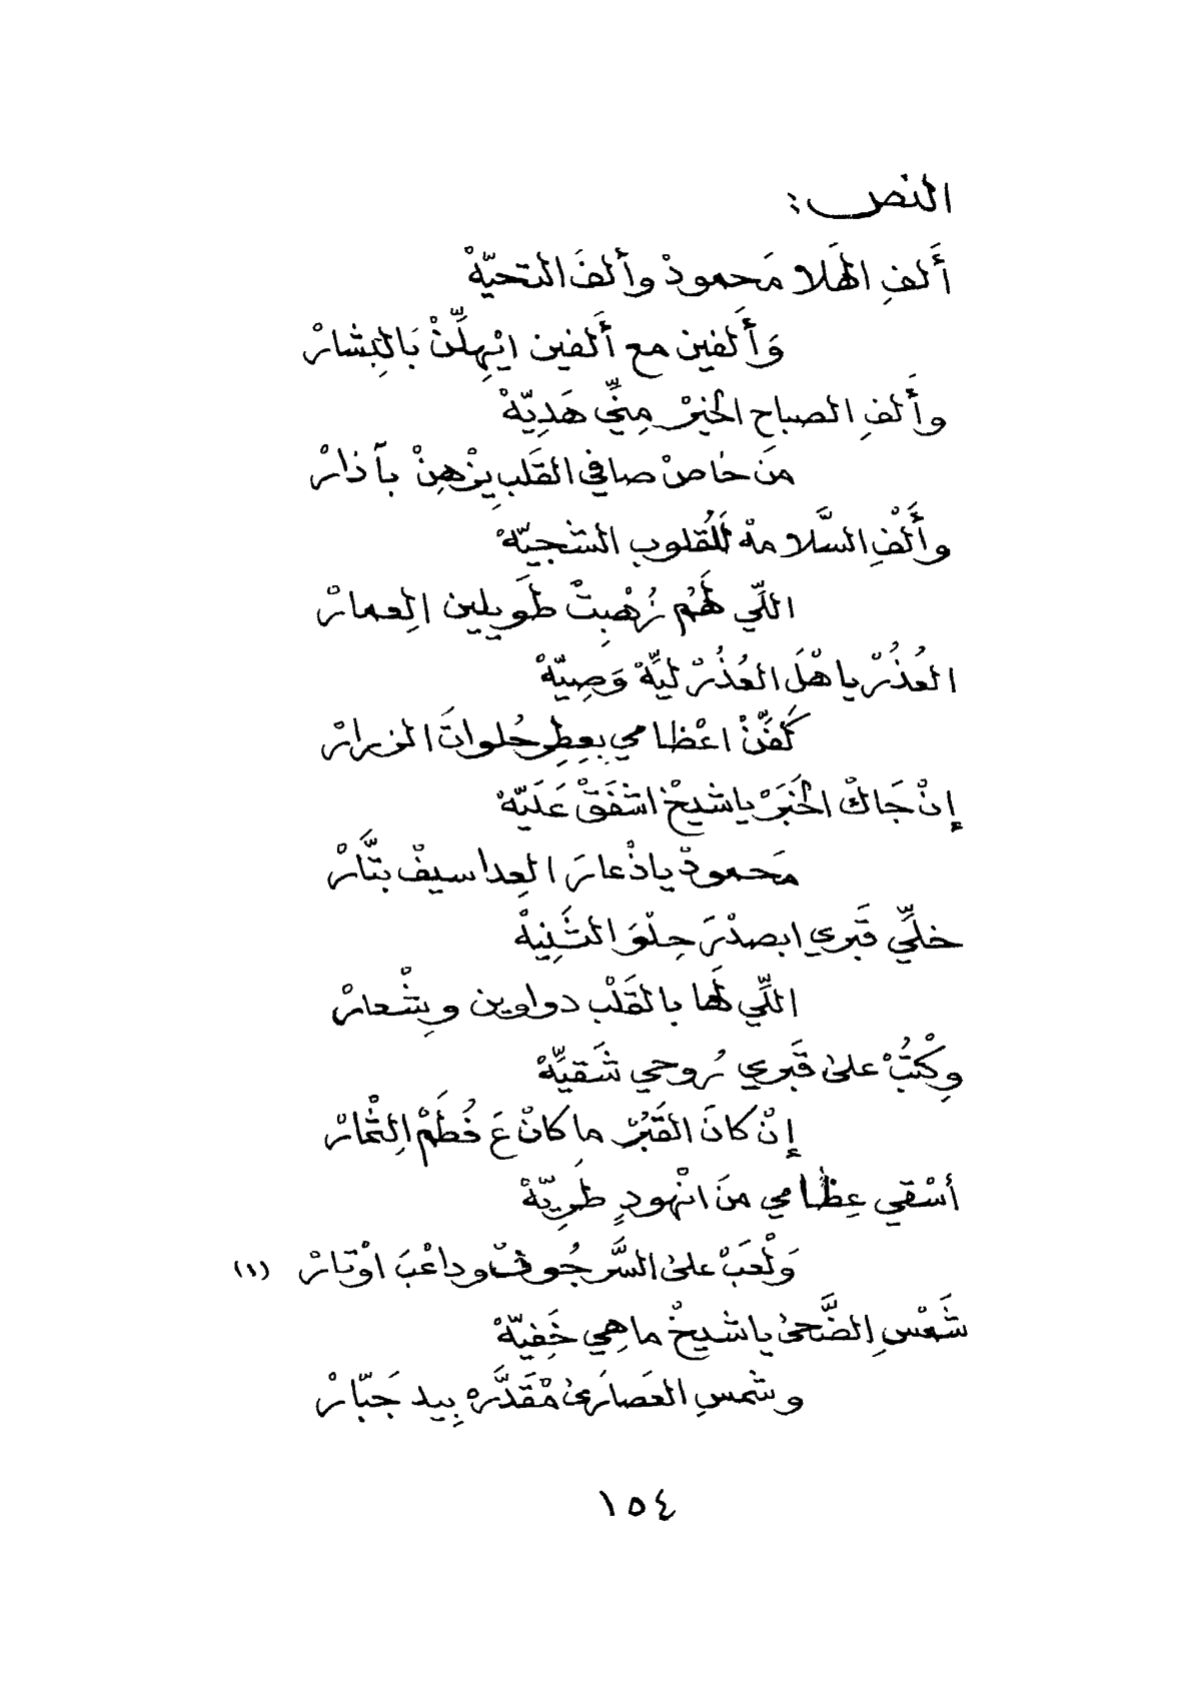 النص :
أَلفِ الهَلا مَحمودْ وألفَ التحيّهْ
وَأَلفين مع أَلفين ايْهِلِّنْ بَالبِشارْ
وأَلفِ الصباح الخيرْ مِنِّي هَدِيّهْ
مَن خاصْ صافي القَلب يِزْهِنْ بآذارْ
وأَلْفِ السَّلامهْ للْقُلوبِ الشجيّهْ
اللِّي لهُم زُهْبِتْ طَويلين العِمارْ
العُذُرْ يا هْلَ العُذُرْ ليِّهْ وَصِيّهْ
كَفِّنْ اعْظامي بعِطِر حُلواتَ الزرارْ
إنْ جَاكْ الخَبَرْ ياشيخْ اشفَقْ عَلَيّهْ
مَحمودْ ياذْعارَ العِدا سيفْ بتَّارْ
خلِّي قَبري ابصدْرَ حِلْوَ الثَنِيهْ
اللِّي لَها بالقَلْب دواوين وِشْعارْ
وِكْتُبْ على قَبري رُوحي شَقيِّهْ
إنْ كانَ القَبُرْ ما كانْ عَ فُطَمْ الِثْمارْ
أسْقي عِظامي منَ انْهودٍ طَرِيّهْ
وَلْعَبْ على السَّرجُوفْ وداعْبَ اوْتارْ (١)
شَمْسِ الضَّحىٰ ياشيخْ ماهِي خَفِيّهْ
وشمسِ العَصارَىٰ مْقَدَّرهْ بِيد جَبّارْ
١٥٤